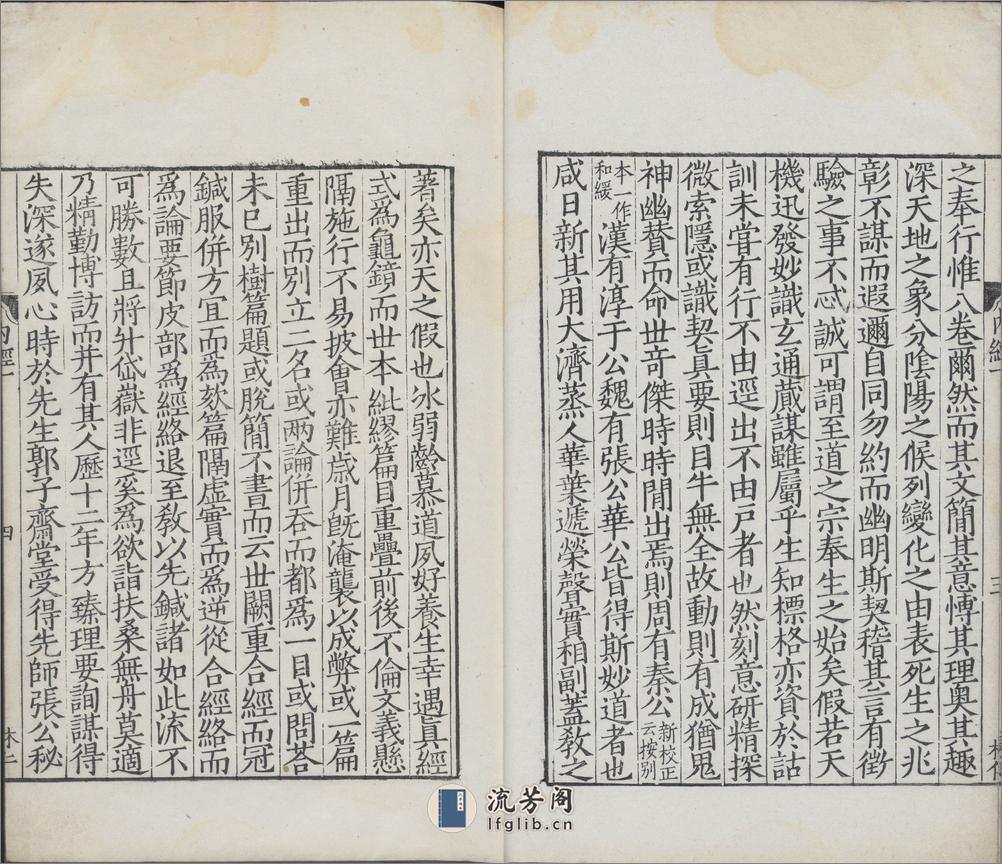 之奉行惟八卷爾然而其文簡其意愽其理奥其趣
深天地之象分隂陽之候列變化之由表死生之兆
彰不謀而遐邇自同勿約而幽明斯契稽其言有徵
驗之事不忒誠可謂至道之宗奉生之始矣假若天
機迅發妙識玄通蕆謀雖屬乎生知標格亦資於詁
訓未甞有行不由逕出不由戸者也然刻意研精探
微索隱或識契真要則目牛無全故動則有成猶鬼
神幽賛而命世竒傑時時閒出焉則周有秦公新校正云按别
本一作和緩漢有淳于公魏有張公華公皆得斯妙道者也
咸日新其用大濟蒸人華葉遞榮聲實相副蓋敎之
著矣亦天之假也冰弱齡慕道夙好養生幸遇真經
式爲龜鏡而世本紕繆篇目重疊前後不倫文義懸
隔施行不易披會亦難歳月旣淹襲以成弊或一篇
重出而别立二名或兩論併吞而都爲一目或問荅
未已别樹篇題或脫簡不書而云世闕重合經而冠
鍼服併方宜而爲欬篇隔虚實而爲逆從合經絡而
爲論要節皮部爲經絡退至敎以先鍼諸如此流不
可勝數且將升岱嶽非逕奚爲欲詣扶桑無舟莫適
乃精勤博訪而并有其人歷十二年方臻理要詢謀得
失深遂夙心時於先生郭子齋堂受得先師張公秘
内經一
四
流芳阁
lfglib.cn